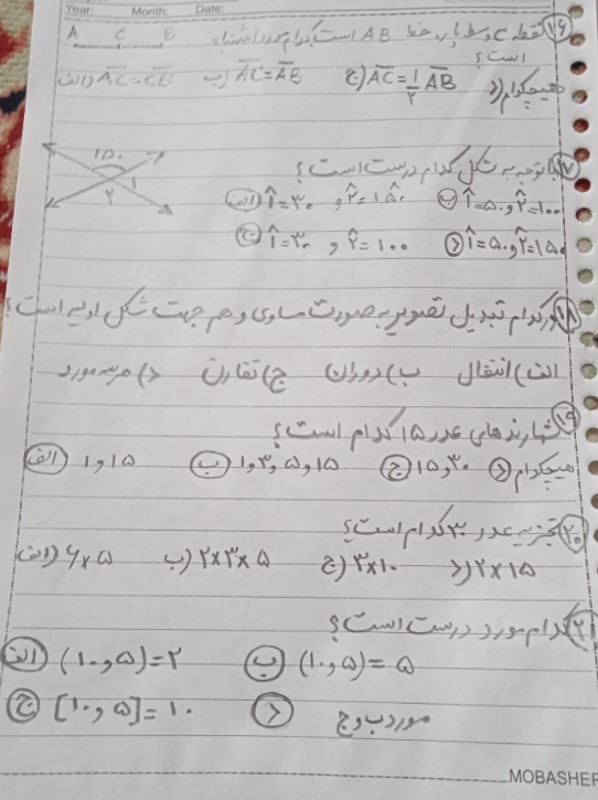 Year: Month: Date:
۱۶) نقطه C وسط پاره خط AB است کدام مورد اشتباه است؟
A C B
الف) AC=CB ب) AC=AB ج) AC=۱/۲ AB د) هیچکدام
۱۷) با توجه به شکل کدام درست است؟
۱۵۰
۱
۲
الف) ۱=۳۰ و ۲=۱۵۰ ب) ۱=۵۰ و ۲=۱۰۰
ج) ۱=۳۰ و ۲=۱۰۰ د) ۱=۵۰ و ۲=۱۵۰
۱۸) در کدام تبدیل تصویر به صورت مساوی و هم جهت شکل اولیه است؟
الف) انتقال ب) دوران ج) تقارن د) هر سه مورد
۱۹) شمارنده های عدد ۱۵ کدام است؟
الف) ۱ و ۱۵ ب) ۱ و ۳ و ۵ و ۱۵ ج) ۱۵ و ۳۰ د) هیچکدام
۲۰) تجزیه عدد ۳۰ کدام است؟
الف) ۶×۵ ب) ۲×۳×۵ ج) ۳×۱۰ د) ۲×۱۵
۲۱) کدام مورد درست است؟
الف) (۱۰ و ۵)=۲ ب) (۱۰ و ۵)=۵
ج) [۱۰ و ۵]=۱۰ د) مورد ب و ج
MOBASHER